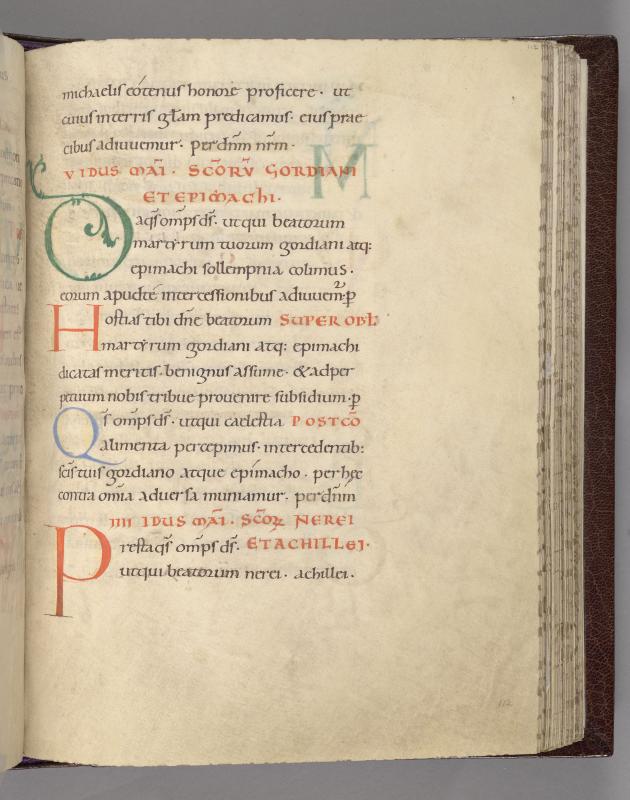 michaelis eotenus honore proficere · ut
cuius interris glam predicamus · eius prae
cibus adiuuemur · per dnm nrm ·
V IDUS MAI · SCORV GORDIANI
ET EPIMACHI ·
Da qs omps ds · ut qui beatorum
martyrum tuorum gordiani atq:
epimachi sollempnia colimus ·
eorum apud te intercessionibus adiuuem² · p
Hostias tibi dne beatorum SUPER OBL
martyrum gordiani atq: epimachi
dicatas meritis · benignus assume · & ad per
petuum nobis tribue prouenire subsidium · p
Qs omps ds · ut qui caelestia POSTCO
alimenta percepimus · intercedentib:
scis tuis gordiano atque epimacho · per hęc
contra omia aduersa muniamur · per dnm
IIII IDUS MAI · SCOR NEREI
Presta qs omps ds · ET ACHILLEI ·
ut qui beatorum nerei · achillei ·
112